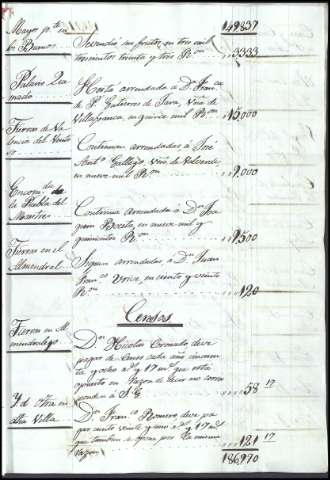 149837
Mayor pte en
los Barros
Ascendió sus frutos, en tres mil
trescientos treinta y tres Rs
3333
Palacio Que
mado
Hierba arrendada a Dn Franco
de P. Gutierrez de Tara, Vno de
Villafranca en quince mil Rs
15,000
Tierras de Va
lencia del Vento
so
Continuan arrendadas á José
Antº Gallego, Vnº de Valverde,
en nueve mil Rs
9.000
Encomda de
la Puebla del
Maestre
Continua Arrendada á Dn Joa
quin Boceta, en nueve mil y
quinientos Rs
9500
Tierras en el
Almendral
Siguen arrendadas a Dn Juan
Franco Urive, en ciento y veinte
Rs
120
Censos
Tierras en Al
mendralejo
Dn Nicolas Coronado deve
pagar de Censo cada año cincuen
ta y ocho rs y 17 ms que esta
opuesto en razon de que no corres
ponden a S. E.
58 17
Y de otra en
dha Villa
Dn Franco Romero deve pa
gar ciento veinte y uno rs y 17 ms
que tambien se opone por la misma
razon
121 17
186970